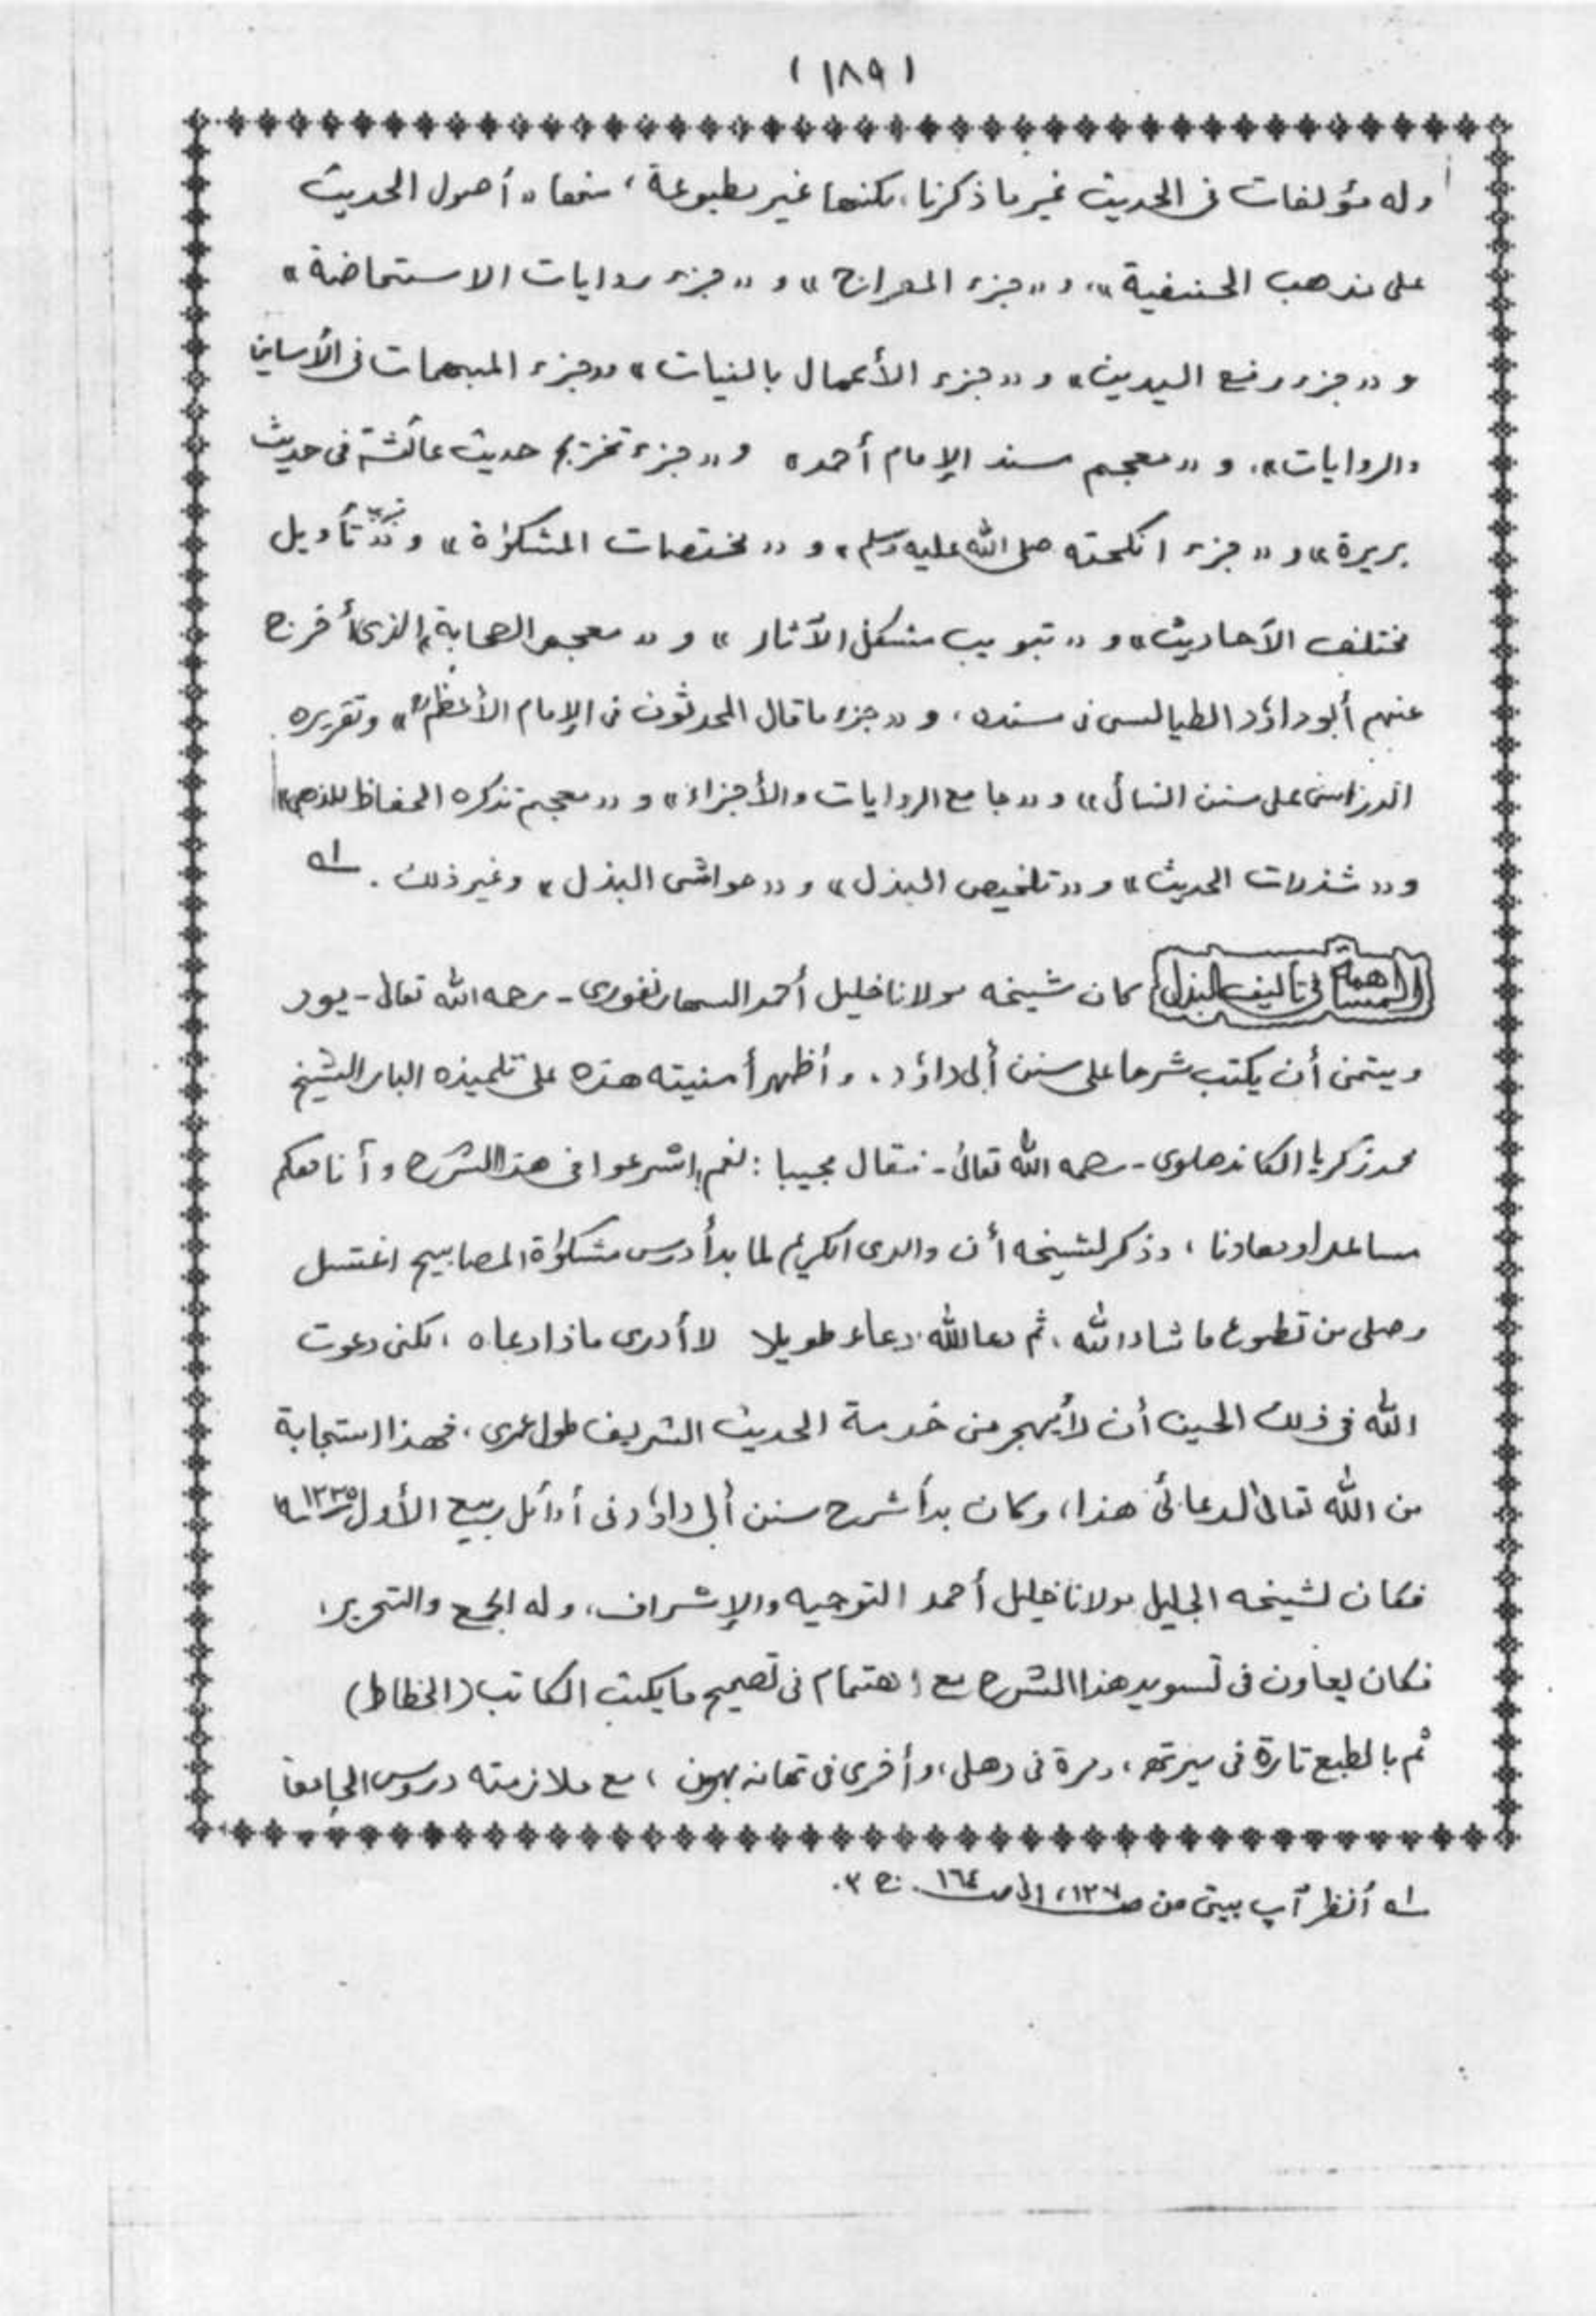 (١٨٩)
وله مؤلفات فى الحديث غير ما ذكرنا، لكنها غير مطبوعة، منها « أصول الحديث
على مذهب الحنفية »، و « جزء المعراج » و « جزء روايات الاستحاضة »
و « جزء رفع اليدين » و « جزء الأعمال بالنيات » و « جزء المبهمات فى الأسانيد
والروايات »، و « معجم مسند الإمام أحمد » و « جزء تخريج حديث عائشة فى حديث
بريرة » و « جزء انكحته صلى الله عليه وسلم » و « مختصات المشكوٰة » و « جزء تأويل
مختلف الأحاديث » و « تبويب مشكل الآثار » و « معجم الصحابة » الذى أخرج
عنهم أبو داؤد الطيالسى فى مسنده، و « جزء ما قال المحدثون فى الإمام الأعظم » وتقريره
على سنن النسائى » و « جامع الروايات والأجزاء » و « معجم تذكره الحفاظ للذهبى »
و « شذرات الحديث » و « تلخيص البذل » و « حواشى البذل » وغير ذلك . ١ه
المساهمة فى تاليف البذل كان شيخه مولانا خليل أحمد السهارنفورى - رحمه الله تعالى - يود
ويتمنى أن يكتب شرحا على سنن أبى داؤد، وأظهر أمنيته هذه على تلميذه البار الشيخ
محمد زكريا الكاندهلوى - رحمه الله تعالى - فقال مجيبا : نعم! اشرعوا فى هذا الشرح وأنا معكم
مساعدا ومعاونا، وذكر لشيخه أن والدى الكريم لما بدأ درس مشكوٰة المصابيح اغتسل
وصلى من تطوع ما شاء الله، ثم دعا لله دعاء طويلا لا أدرى ماذا دعاه، لكنى دعوت
الله فى ذلك الحين أن لا يهجر من خدمة الحديث الشريف طول عمرى، فهذا استجابة
من الله تعالى لدعائى هذا، وكان بدأ شرح سنن أبى داؤد فى أوائل ربيع الأول ١٣٣٥ه
فكان لشيخه الجليل مولانا خليل أحمد التوجيه والإشراف، وله الجمع والتحرير،
فكان يعاون فى تسويد هذا الشرح مع اهتمام فى تصحيح ما يكتب الكاتب (الخطاط)
ثم بالطبع تارة فى ميرته، ومرة فى دهلى، وأخرى فى تهانه بهون، مع ملازمته دروس الجامعة
١ه أنظر آپ بيتى من ص١٣٧، الى ص١٦٤ . ج ٣ .